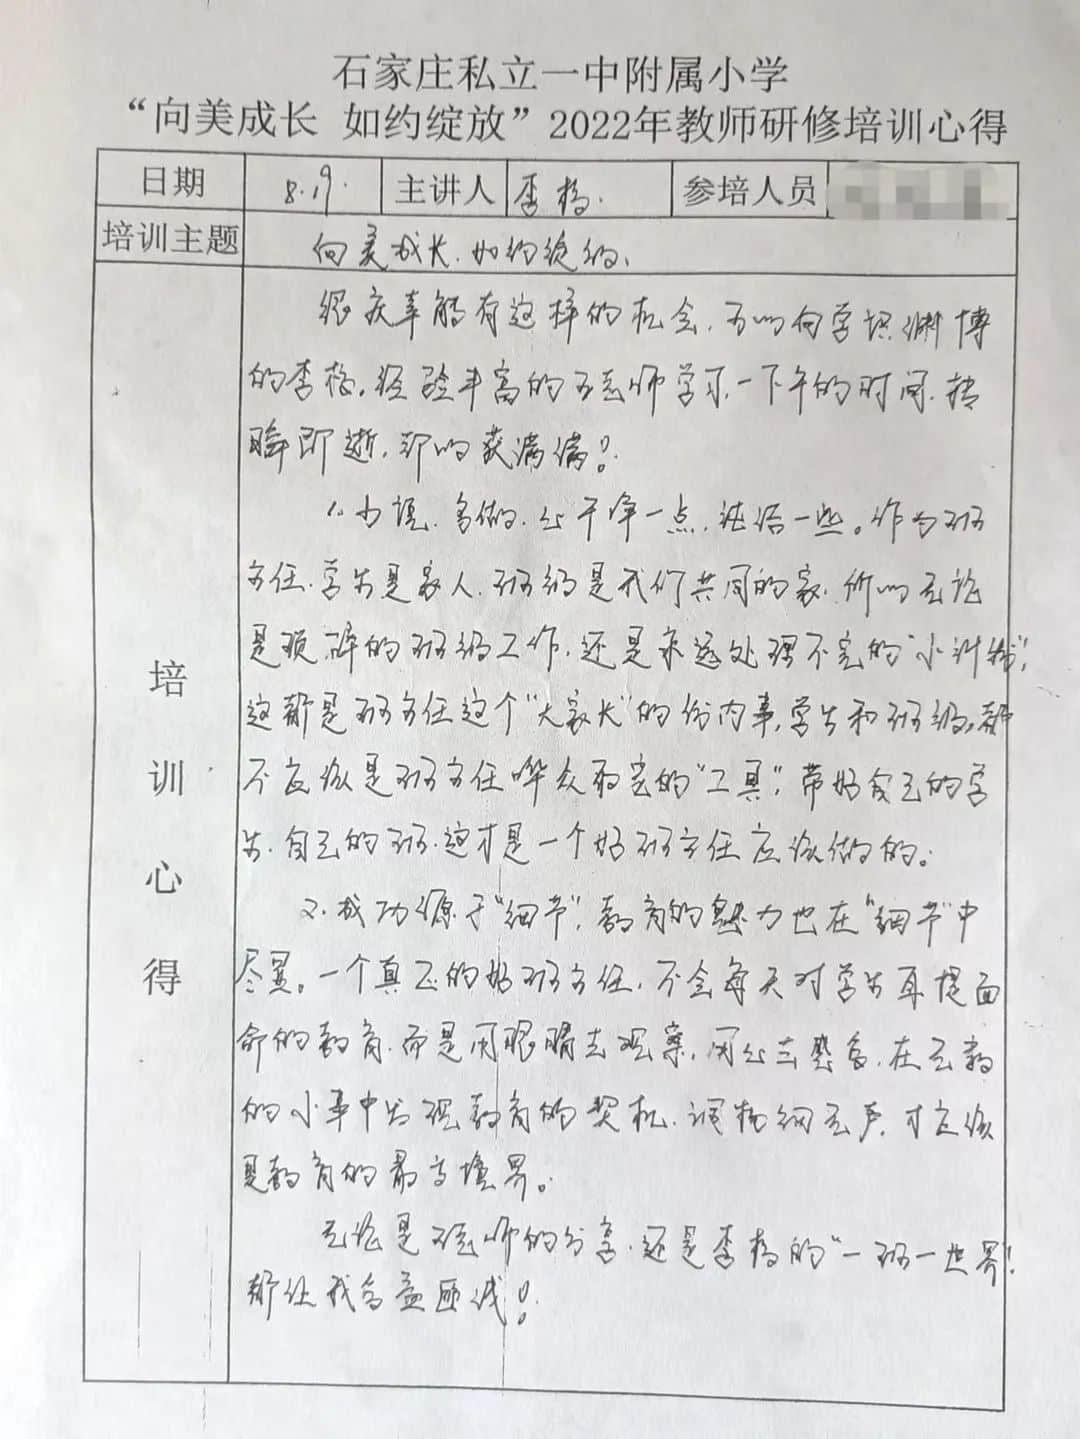 石家庄私立一中附属小学
“向美成长 如约绽放”2022年教师研修培训心得
日期 8.19. 主讲人 李杨. 参培人员
培训主题 向美成长.如约绽放.
培训心得
很庆幸能有这样的机会.可以向学识渊博
的李杨.经验丰富的王老师学习.一下午的时间.转
瞬即逝.却收获满满!
1.少说.多做.心干净一点.满洽一些。作为班
主任.学生是家人.班级是我们共同的家.所以无论
是琐碎的班级工作.还是永远处理不完的“小纠纷”,
这都是班主任这个“大家长”的份内事.学生和班级.都
不应该是班主任哗众取宠的“工具”,带好自己的学
生.自己的班.这才是一个好班主任应该做的。
2.成功源于“细节”,教育的魅力也在“细节”中
尽显。一个真正的好班主任.不会每天对学生耳提面
命的教育.而是用眼睛去观察,用心去感受.在无数
的小事中发现教育的契机.润物细无声.才应该
是教育的最高境界。
无论是王老师的分享.还是李杨的“一班一世界”
都让我受益匪浅!